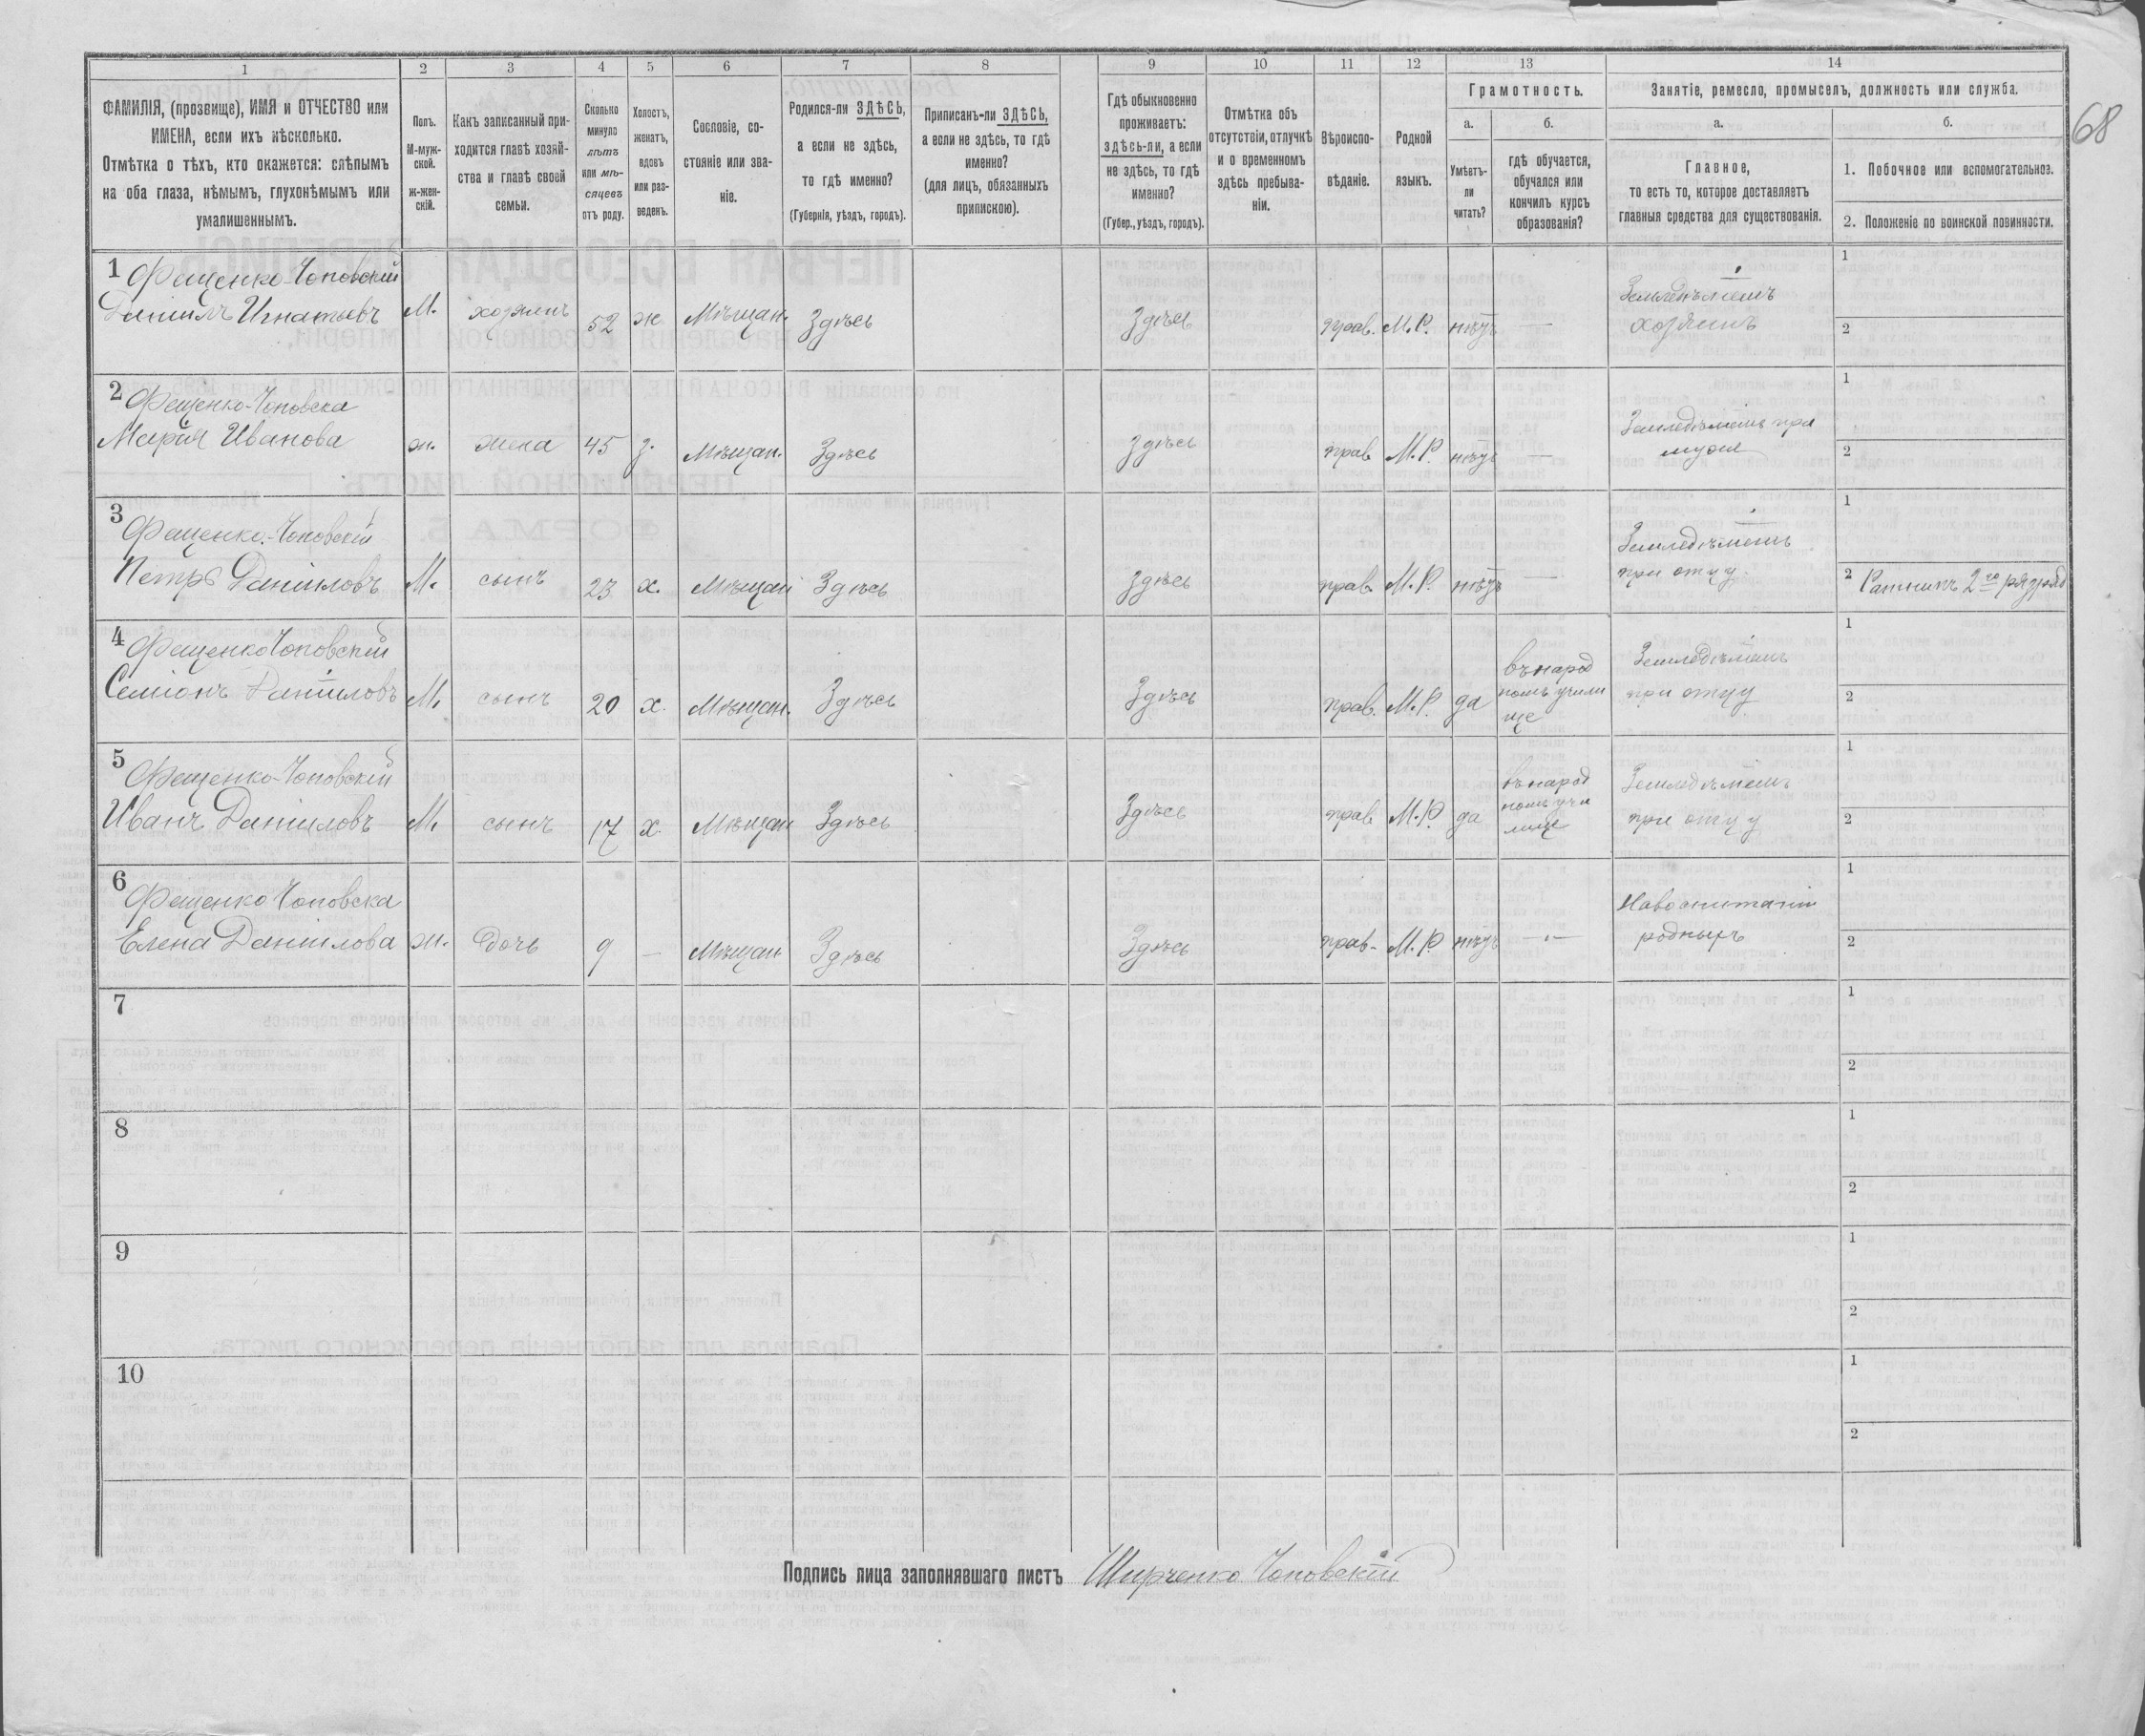 68
1 2 3 4 5 6 7 8 9 10 11 12 13 14
ФАМИЛІЯ, (прозвище), ИМЯ и ОТЧЕСТВО или
ИМЕНА, если ихъ нѣсколько.
Отмѣтка о тѣхъ, кто окажется: слѣпымъ
на оба глаза, нѣмымъ, глухонѣмымъ или
умалишеннымъ.
Полъ.
М-муж-
ской.
Ж-жен-
скій.
Какъ записанный при-
ходится главѣ хозяй-
ства и главѣ своей
семьи.
Сколько
минуло
лѣтъ
или мѣ-
сяцевъ
отъ роду.
Холостъ,
женатъ,
вдовъ
или раз-
веденъ.
Сословіе, со-
стояніе или зва-
ніе.
Родился-ли ЗДѢСЬ,
а если не здѣсь,
то гдѣ именно?
(Губернія, уѣздъ, городъ).
Приписанъ-ли ЗДѢСЬ,
а если не здѣсь, то гдѣ
именно?
(для лицъ, обязанныхъ
припискою).
Гдѣ обыкновенно
проживаетъ:
здѣсь-ли, а если
не здѣсь, то гдѣ
именно?
(Губер., уѣздъ, городъ).
Отмѣтка объ
отсутствіи, отлучкѣ
и о временномъ
здѣсь пребыва-
ніи.
Вѣроиспо-
вѣданіе.
Родной
языкъ.
Грамотность.
а.
Умѣетъ-
ли
читать?
б.
гдѣ обучается,
обучался или
кончилъ курсъ
образованія?
Занятіе, ремесло, промыселъ, должность или служба.
а.
Главное,
то есть то, которое доставляетъ
главныя средства для существованія.
б.
1. Побочное или вспомогательное.
2. Положеніе по воинской повинности.
1 Фещенко-Чоповскій
Даніилъ Игнатьевъ М. хозяинъ 52 ж Мѣщан. Здѣсь Здѣсь прав. М.Р. нѣтъ —
Земледѣлецъ
хозяинъ
1
2
2 Фещенко-Чоповска
Марія Иванова ж. жена 45 з. Мѣщан. Здѣсь Здѣсь прав М.Р. нѣтъ —
Земледѣлецъ при
мужѣ
1
2
3 Фещенко-Чоповскій
Петръ Даніиловъ М. сынъ 23 х. Мѣщан Здѣсь Здѣсь прав. М.Р. нѣтъ —
Земледѣлецъ
при отцу.
1
2 Ратникъ 2го разряда
4 Фещенко Чоповскій
Семіонъ Даніиловъ М. сынъ 20 х. Мѣщан. Здѣсь Здѣсь прав. М.Р. да
въ народ
номъ учили
ще
Земледѣлецъ
при отцу
1
2
5 Фещенко-Чоповскій
Иванъ Даніиловъ М. сынъ 17 х. Мѣщан Здѣсь Здѣсь прав М.Р. да
въ народ
номъ учи
лище
Земледѣлецъ
при отцу
1
2
6 Фещенко Чоповска
Елена Даніилова ж. дочь 9 — Мѣщан Здѣсь Здѣсь прав- М.Р. нѣтъ —"—
На воспитаніи
родныхъ
1
2
7
1
2
8
1
2
9
1
2
10
1
2
Подпись лица заполнявшаго листъ Чоповскій